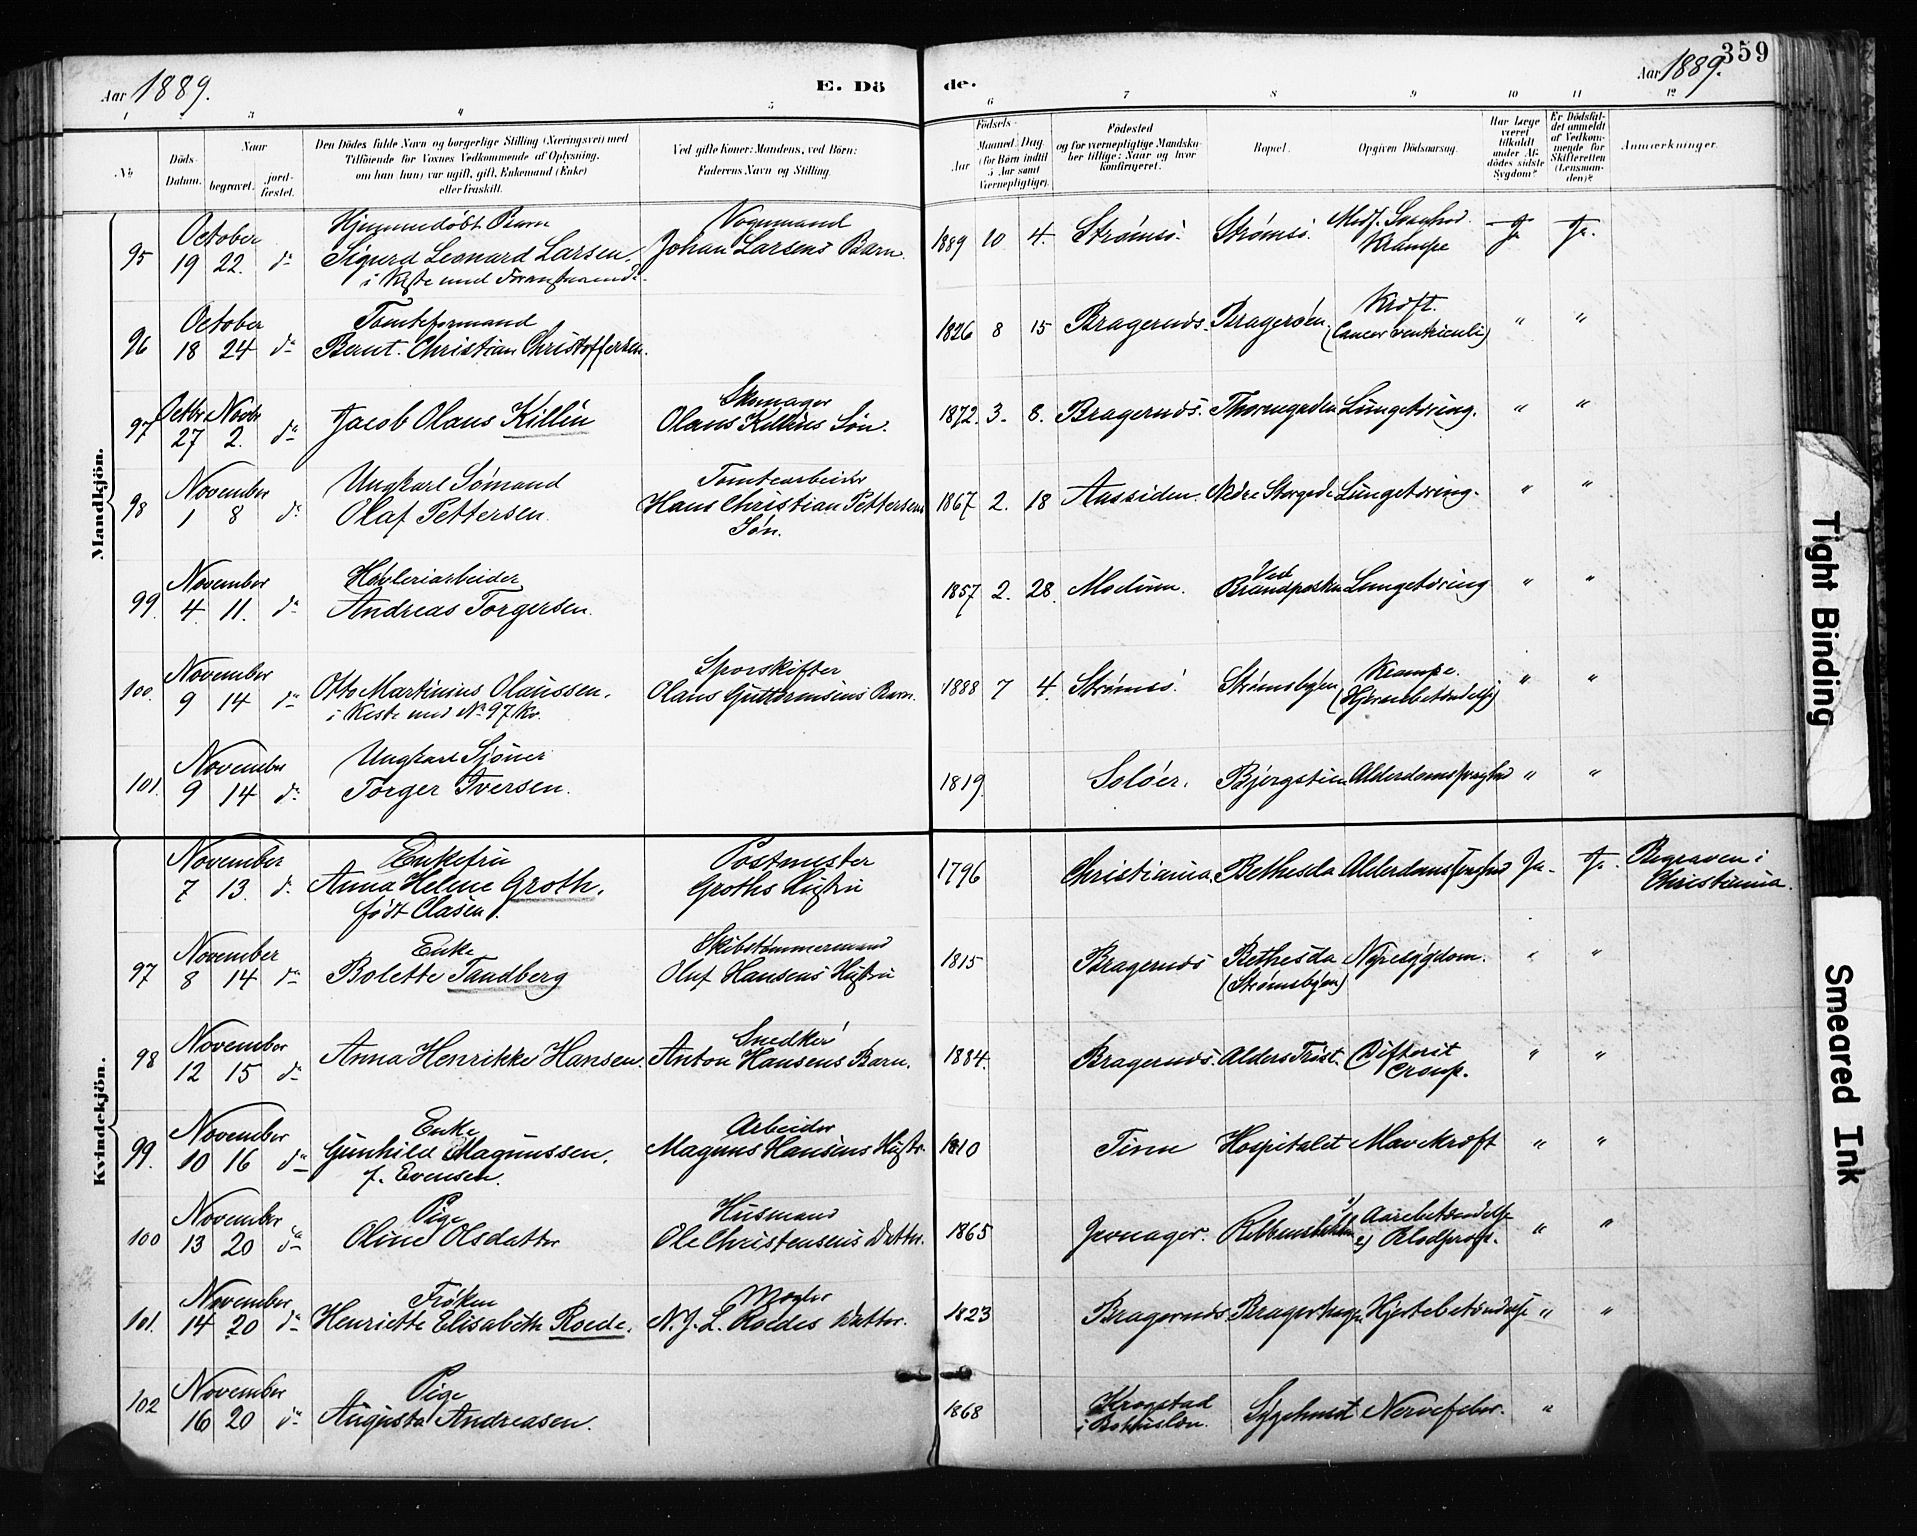 359
Aar 1889.
E. Dö
de.
Aar 1889.
1 2 3 4 5 6 7 8 9 10 11 12
No
Döds-Datum.
Naar
begravet.
jord-fæstet.
Den Dödes fulde Navn og borgerlige Stilling (Næringsvei) med
Tilföiende for Voxnes Vedkommende af Oplysning,
om han (hun) var ugift, gift, Enkemand (Enke)
eller fraskilt.
Ved gifte Koner: Mandens, ved Börn:
Faderens Navn og Stilling.
Födsels-
Aar
Maaned Dag
(for Börn indtil
5 Aar samt
Værnepligtige).
Födested
og for værnepligtige Mandskaber tillige: Naar og hvor
konfirmeret.
Bopæl.
Opgiven Dödsaarsag.
Har Læge
været
tilkaldt
under Afdödes sidste
Sygdom?
Er Dödsfaldet anmeldt
af Vedkommende for
Skifteretten
(Lensmanden)?
Anmærkninger.
Mandkjön.
95 October 19 22. do Hjemmedöbt Barn Sigurd Leonard Larsen. Vognmand Johan Larsens Barn. 1889 10 4. Strømsö. Strømsö. Medf. Svaghed Krampe Ja Ja.
96 October 18 24 do Tomteformand Bernt Christian Christoffersen. 1826 8 15 Bragernæs. Bragerøen. Kræft. (Cancer ventriculi) " "
97 Octbr. 27 Novbr 2. do Jacob Olaus Killin Skomager Olaus Killins Søn. 1872. 3. 8. Bragernæs. Thornegaden Lungetæring. " "
98 November 1 8 do Ungkarl Sömand Olaf Pettersen. Tomtearbeider Hans Christian Pettersens Søn. 1867 2. 18 Aassiden. Nedre Storgade Lungetæring. " "
99. November 4. 11. do Høvleriarbeider Andreas Torgersen. 1857 2. 28. Modum. Ved Brandposten Lungetæring " "
100. November 9 14 do Otto Martinius Olaussen. i Kiste med No 97 Kv. Sporskifter Olaus Guttormsens Barn. 1888 7 4. Strømsö. Strømsbyen Krampe. (Hjernebetændelse) " "
101. November 9 14 do Ungkarl Sjöner Torger Iversen. 1819. Solöer. Bjergstien Alderdomssvaghed " "
Kvindekjön.
November 7 13. do Enkefru Anna Helene Groth. født Clasen. Postmester Groths Hustru 1796 Christiania. Bethesda Alderdomssvaghed Ja. Ja. Begraven i Christiania.
97 November 8 14 do Enke Bolette Tandberg Skibstømmermand Oluf Hansens Hustru 1815 Bragernæs Bethesda (Strømsbyen) Nyresygdom. " "
98 November 12 15 do Anna Henrikke Hansen. Snedker Anton Hansens Barn. 1884. Bragernæs. Alders Trøst. Difterit Croup. " "
99. November 10 16 do Enke Gunhild Magnussen. f. Evensen. Arbeider Magnus Hansens Hustr. 1810 Tinn Hospitalet Mavekræft " "
100 November 13 20 do Pige Oline Olsdatter Husmand Ole Christensens Datter. 1865 Jevnager. 1) Aarebetændelse 2) Blodprop. " "
101. November 14 20 do Frøken Henriette Elisabeth Roede. Mægler N. J. L. Roedes Datter. 1823 Bragernæs Bragerhagen Hjertebetændelse " "
102 November 16 20 do Pige Augusta Andreasen. 1868 Krogstad i Bohuslen. Sygehuset Nervefeber. "
Tight Binding
Smeared Ink